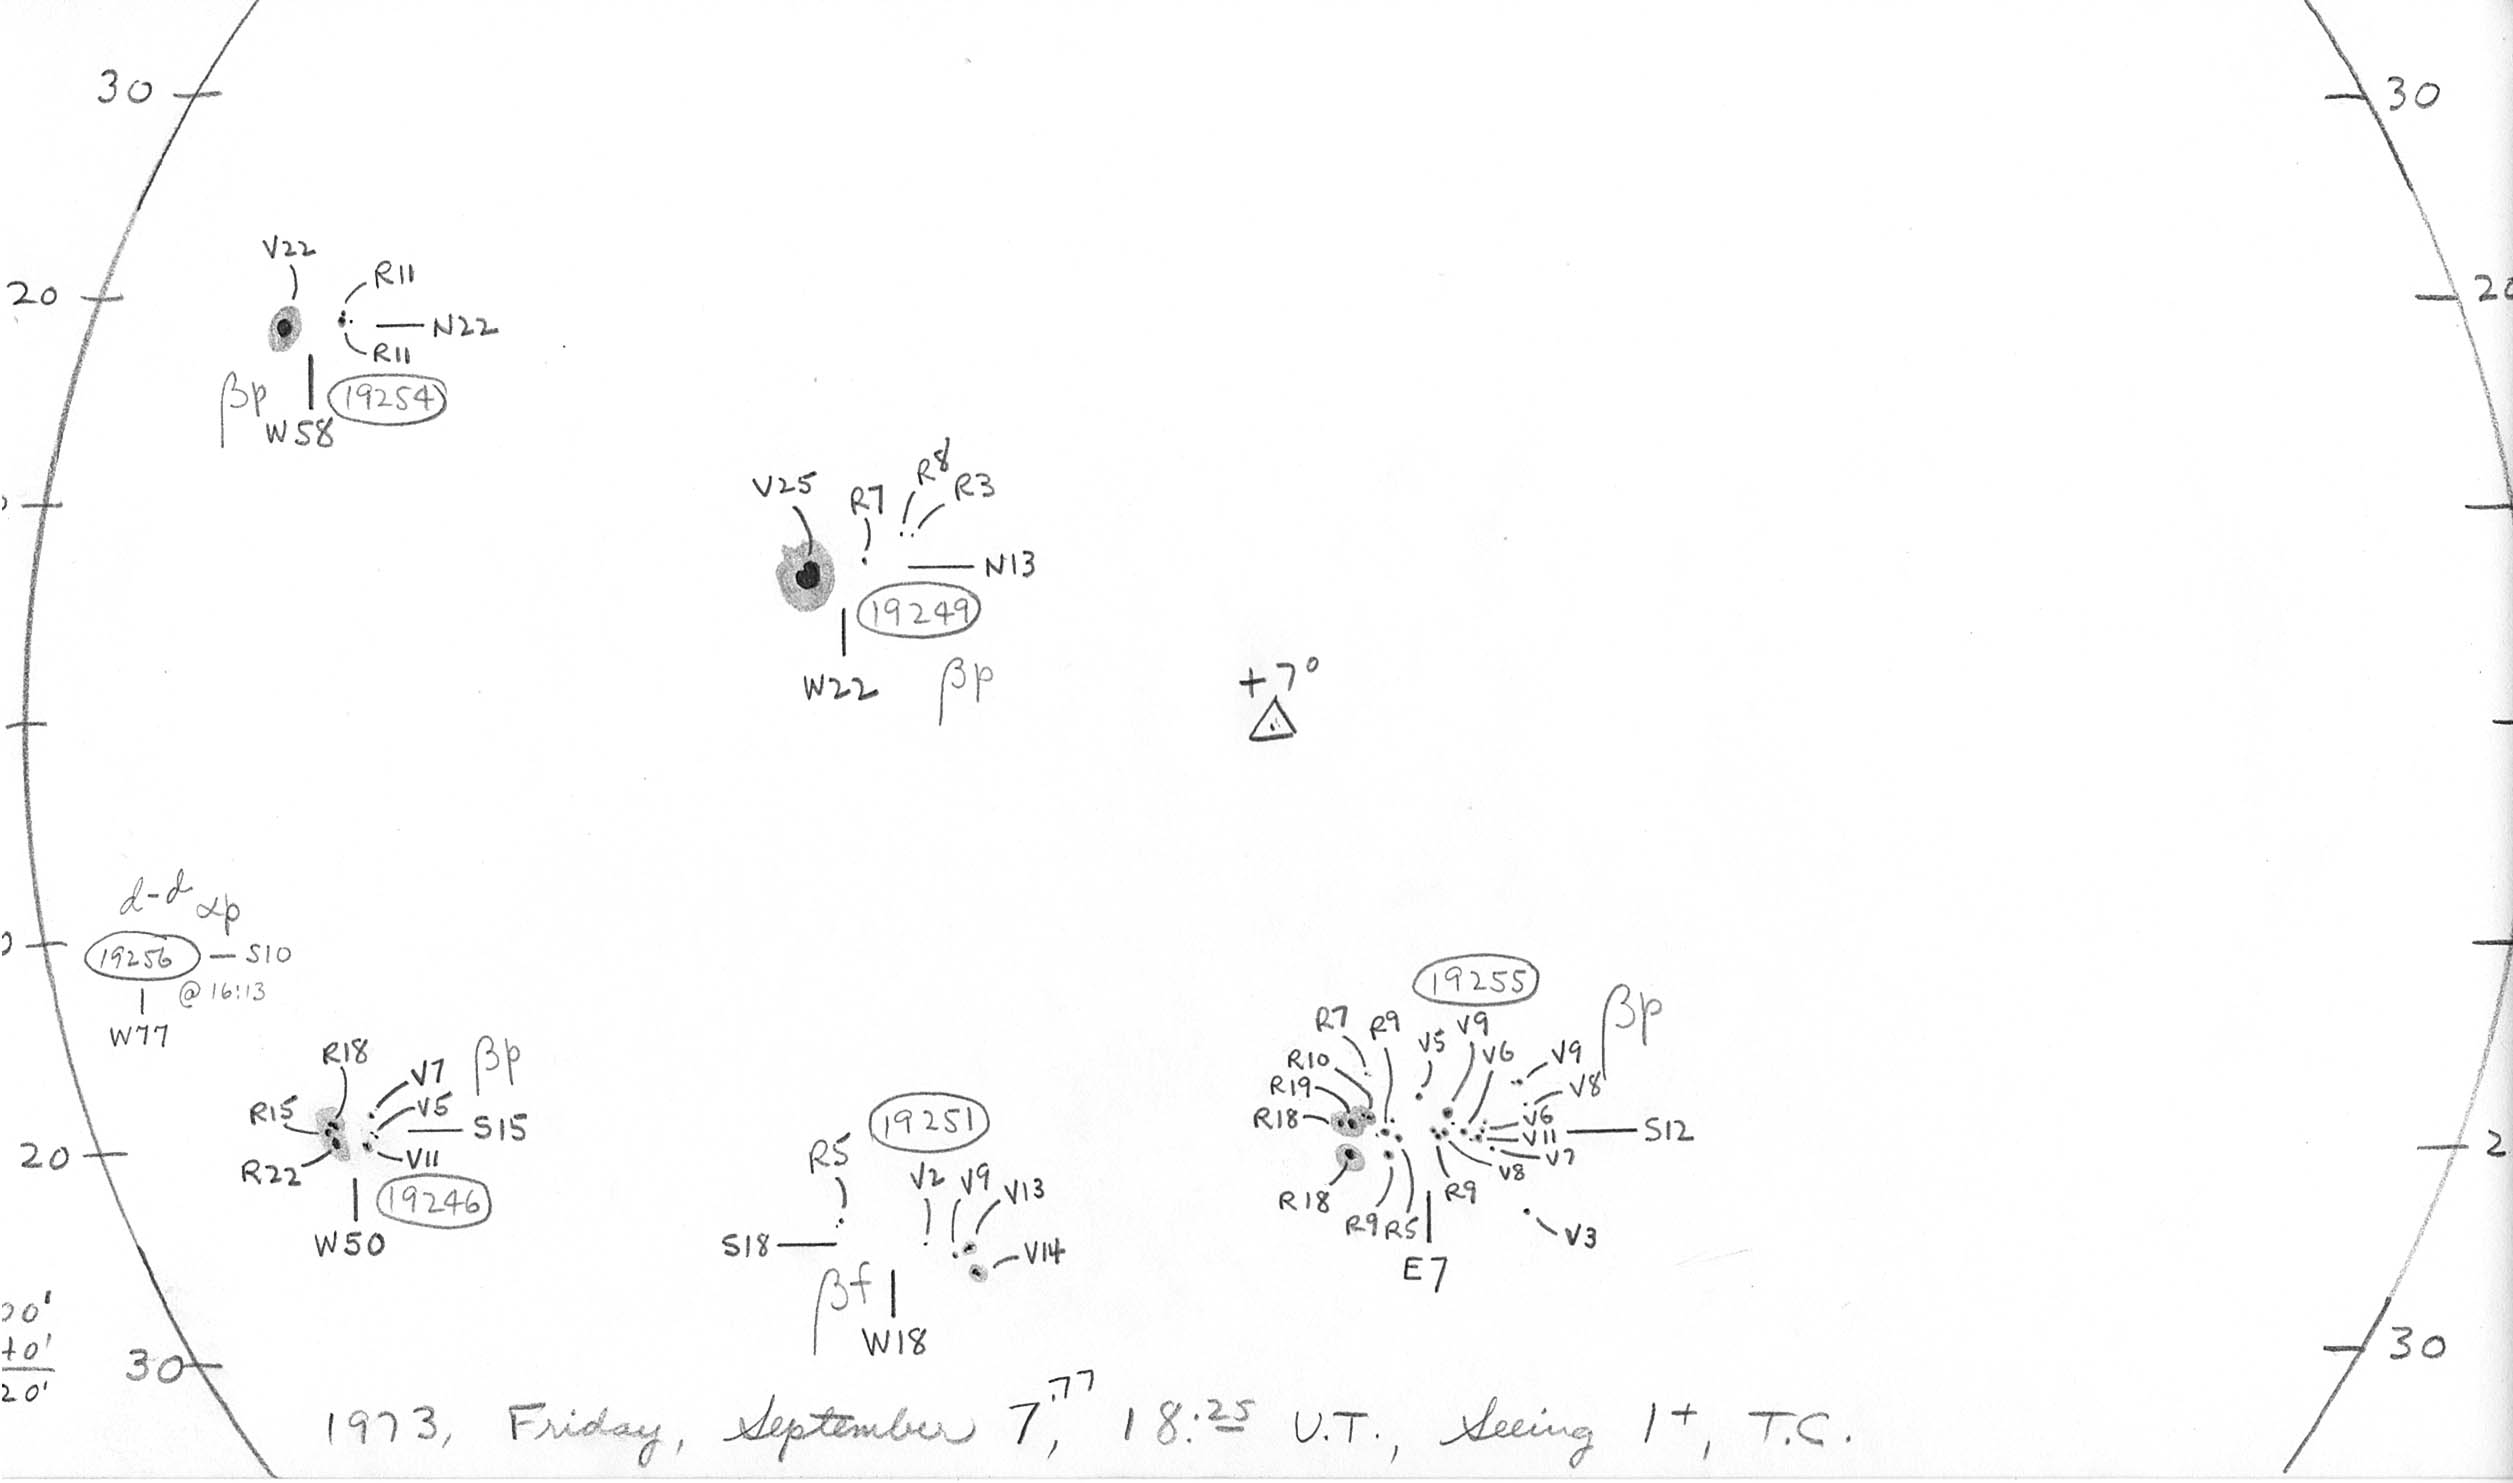 30
30
V22
R11
20
20
N22
R11
βp
19254
W58
R8
V25
R7
R3
N13
19249
W22
βp
+7°
d-d
αp
19256
S10
@ 16:13
W77
19255
βp
R7
R9
V5
V9
V6
V9
R10
R19
V8
R18
V6
V11
S12
V7
V8
R18
R9
R9
R5
V3
E7
R18
V7
βp
R15
V5
S15
20
V11
R22
19246
W50
19251
R5
V2
V9
V13
S18
V14
βf
W18
2
20'
30
30
1973, Friday, September 7.77, 18:25 U.T., Seeing 1+, T.C.